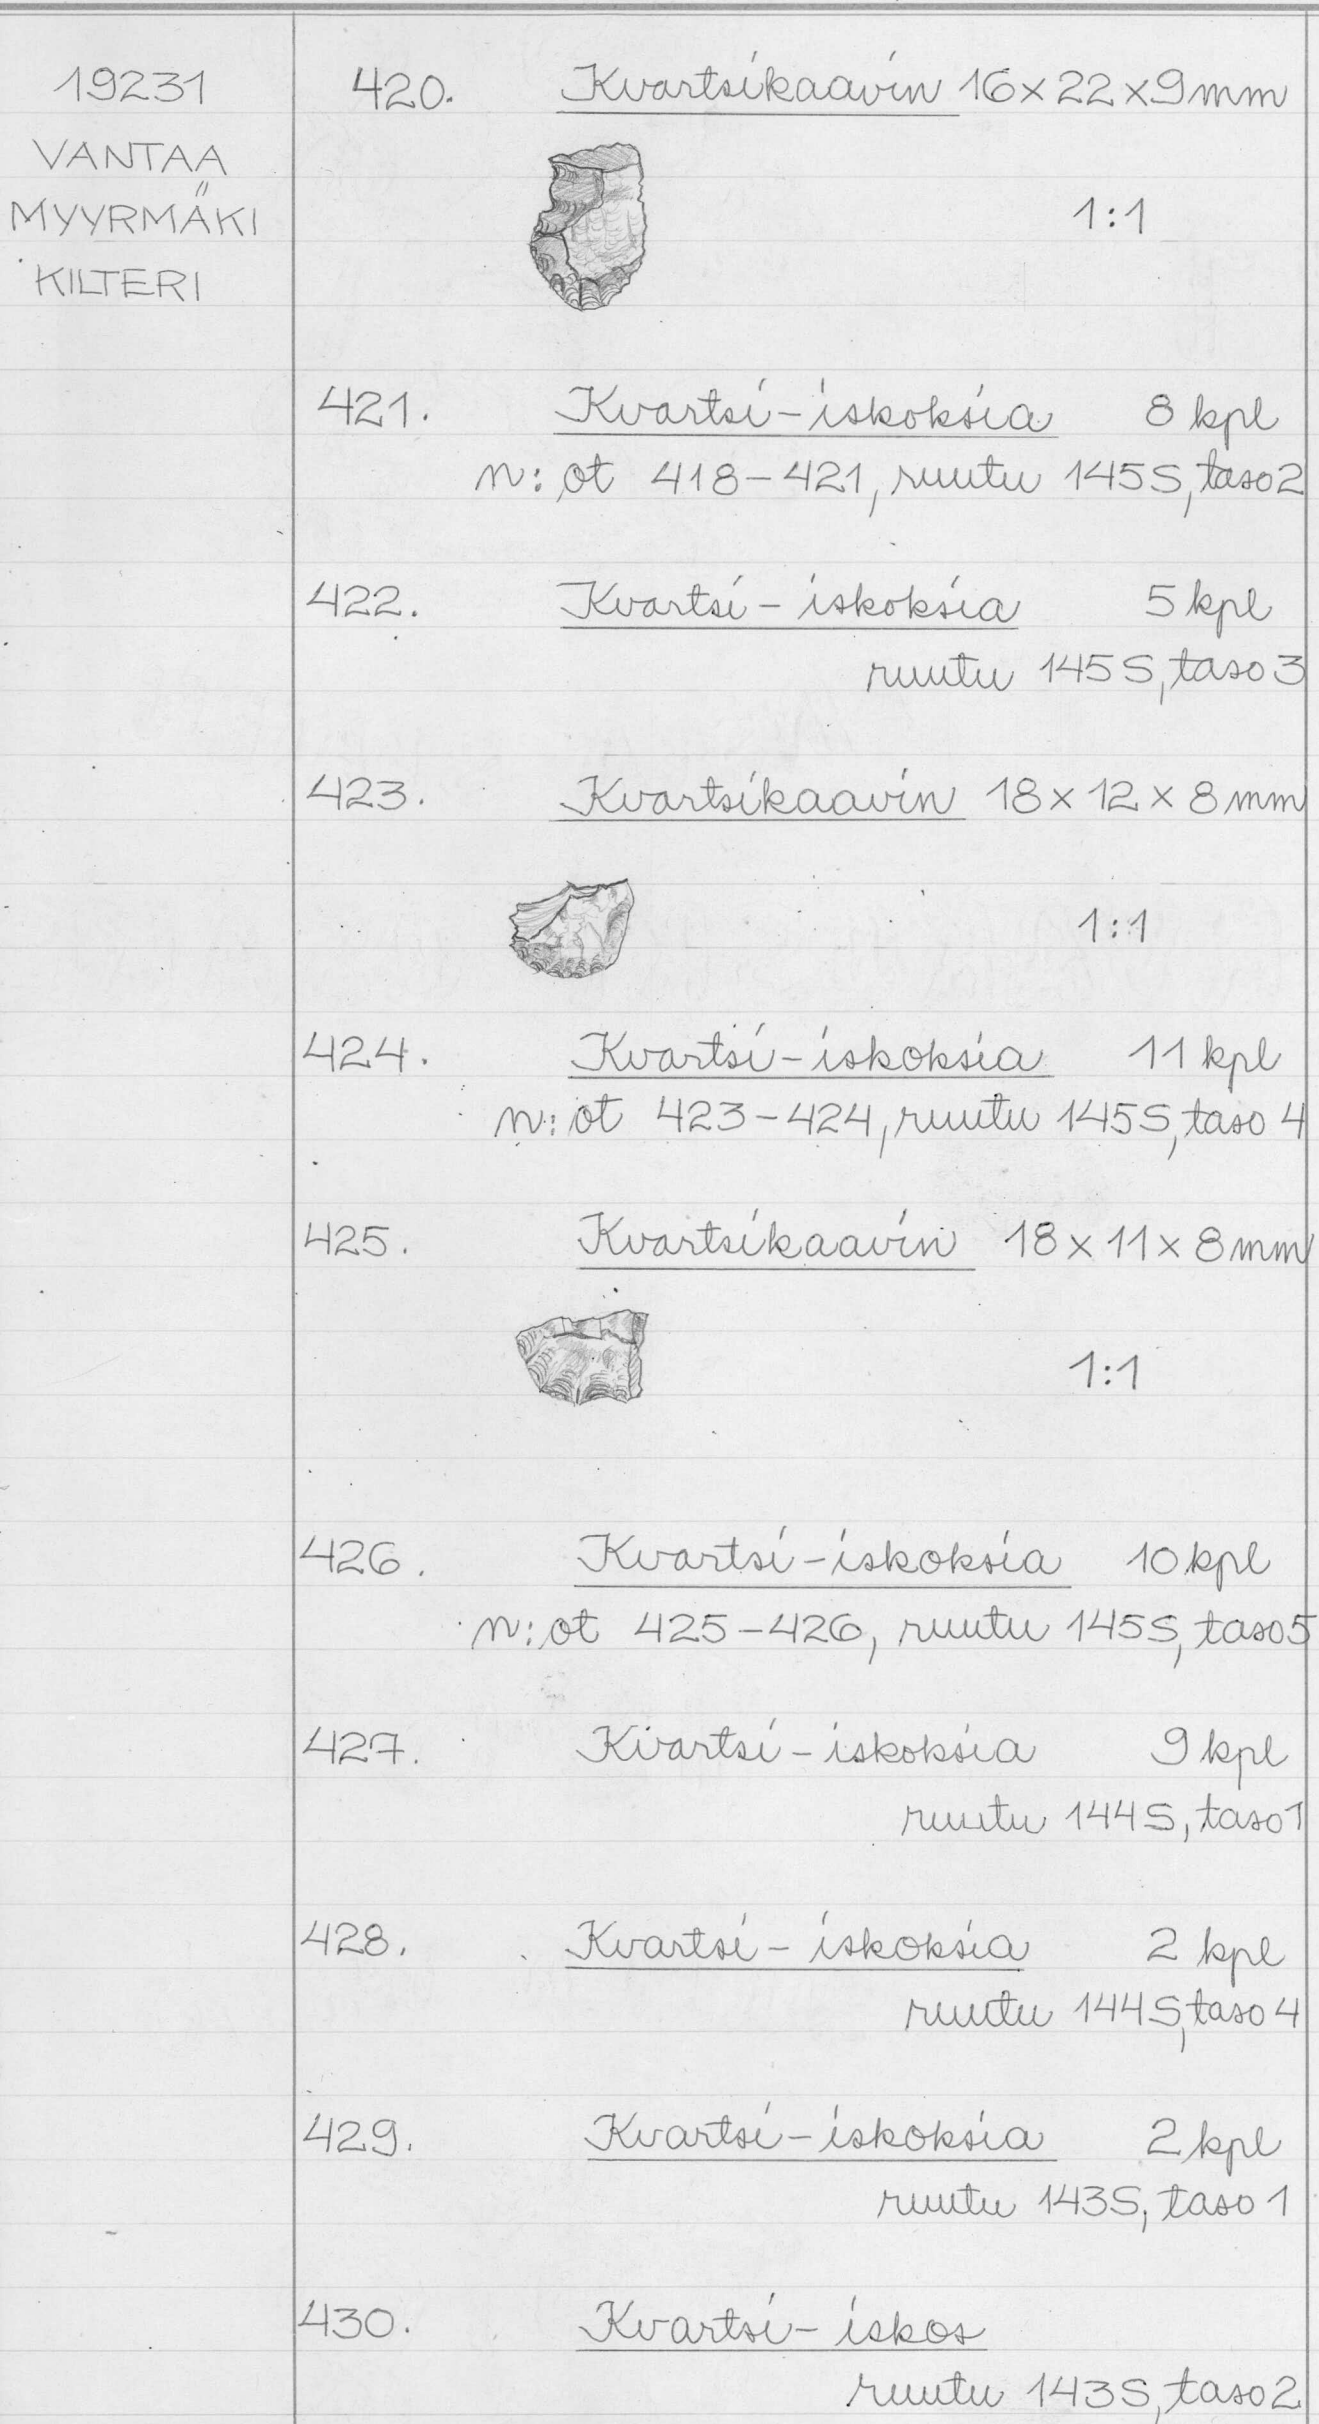 19231
VANTAA
MYYRMÄKI
KILTERI
420. Kvartsikaavin 16x22x9mm
1:1
421. Kvartsi-iskoksia 8 kpl
n:ot 418-421, ruutu 145S, taso 2
422. Kvartsi-iskoksia 5 kpl
ruutu 145S, taso 3
423. Kvartsikaavin 18x12x8mm
1:1
424. Kvartsi-iskoksia 11 kpl
n:ot 423-424, ruutu 145S, taso 4
425. Kvartsikaavin 18x11x8mm
1:1
426. Kvartsi-iskoksia 10 kpl
n:ot 425-426, ruutu 145S, taso 5
427. Kvartsi-iskoksia 9 kpl
ruutu 144S, taso 1
428. Kvartsi-iskoksia 2 kpl
ruutu 144S, taso 4
429. Kvartsi-iskoksia 2 kpl
ruutu 143S, taso 1
430. Kvartsi-iskos
ruutu 143S, taso 2